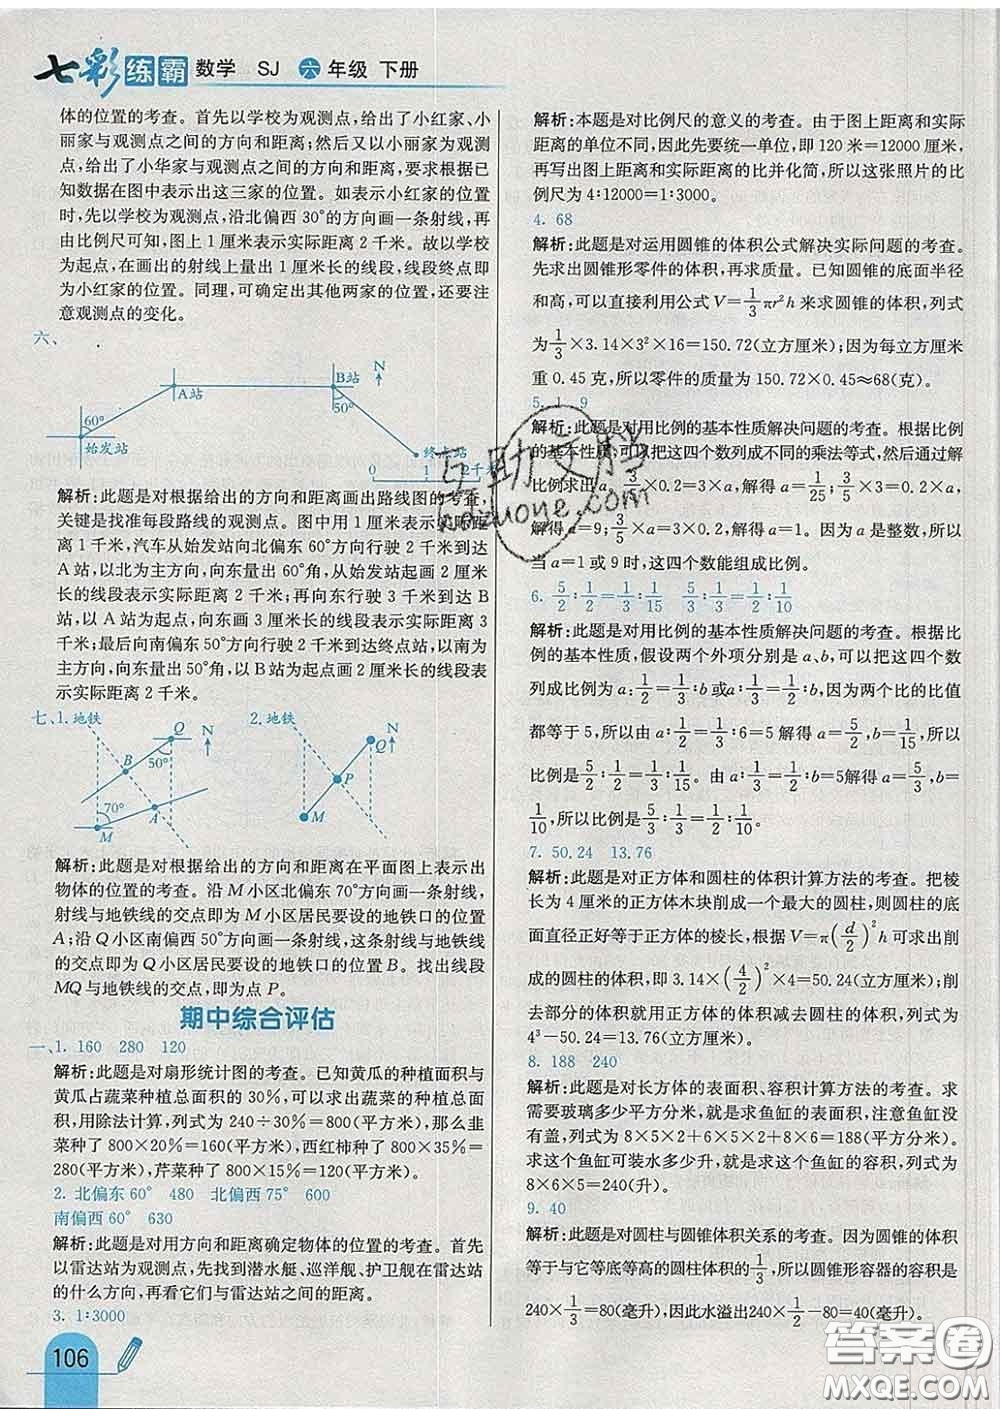 七彩练霸 数学 SJ 六年级 下册
体的位置的考查。首先以学校为观测点,给出了小红家、小
丽家与观测点之间的方向和距离;然后又以小丽家为观测
点,给出了小华家与观测点之间的方向和距离,要求根据已
知数据在图中表示出这三家的位置。如表示小红家的位置
时,先以学校为观测点,沿北偏西30°的方向画一条射线,再
由比例尺可知,图上1厘米表示实际距离2千米。故以学校
为起点,在画出的射线上量出1厘米长的线段,线段终点即
为小红家的位置。同理,可确定出其他两家的位置,还要注
意观测点的变化。
六、
N
B站
A站
50°
60°
始发站
终点站
0 1 2千米
解析:此题是对根据给出的方向和距离画出路线图的考查,
关键是找准每段路线的观测点。图中用1厘米表示实际距
离1千米,汽车从始发站向北偏东60°方向行驶2千米到达
A站,以北为主方向,向东量出60°角,从始发站起画2厘米
长的线段表示实际距离2千米;再向东行驶3千米到达B
站,以A站为起点,向东画3厘米长的线段表示实际距离3
千米;最后向南偏东50°方向行驶2千米到达终点站,以南为
主方向,向东量出50°角,以B站为起点画2厘米长的线段表
示实际距离2千米。
七、1.地铁 Q N 2.地铁 N
50° Q
B P
70°
M A M
解析:此题是对根据给出的方向和距离在平面图上表示出
物体的位置的考查。沿M小区北偏东70°方向画一条射线,
射线与地铁线的交点即为M小区居民要设的地铁口的位置
A;沿Q小区南偏西50°方向画一条射线,这条射线与地铁线
的交点即为Q小区居民要设的地铁口的位置B。找出线段
MQ与地铁线的交点,即为点P。
期中综合评估
一、1. 160 280 120
解析:此题是对扇形统计图的考查。已知黄瓜的种植面积与
黄瓜占蔬菜种植总面积的30%,可以求出蔬菜的种植总面
积,用除法计算,列式为240÷30%=800(平方米),那么韭
菜种了800×20%=160(平方米),西红柿种了800×35%=
280(平方米),芹菜种了800×15%=120(平方米)。
2. 北偏东60° 480 北偏西75° 600
南偏西60° 630
解析:此题是对用方向和距离确定物体的位置的考查。首先
以雷达站为观测点,先找到潜水艇、巡洋舰、护卫舰在雷达站
的什么方向,再看它们与雷达站之间的距离。
3. 1:3000
106
解析:本题是对比例尺的意义的考查。由于图上距离和实际
距离的单位不同,因此先要统一单位,即120米=12000厘米,
再写出图上距离和实际距离的比并化简,所以这张照片的比
例尺为4:12000=1:3000。
4. 68
解析:此题是对运用圆锥的体积公式解决实际问题的考查。
先求出圆锥形零件的体积,再求质量。已知圆锥的底面半径
和高,可以直接利用公式V=1/3πr²h来求圆锥的体积,列式
为1/3×3.14×3²×16=150.72(立方厘米);因为每立方厘米
重0.45克,所以零件的质量为150.72×0.45≈68(克)。
5. 1 9
解析:此题是对用比例的基本性质解决问题的考查。根据比
例的基本性质,可以把这四个数列成不同的乘法等式,然后通过解
比例求出a,3/5×0.2=3a,解得a=1/25;3/5×3=0.2×a,
解得a=9;3/5×a=3×0.2,解得a=1。因为a是整数,所以
当a=1或9时,这四个数能组成比例。
6. 5/2:1/2=1/3:1/15 5/3:1/3=1/2:1/10
解析:此题是对用比例的基本性质解决问题的考查。根据比
例的基本性质,假设两个外项分别是a、b,可以把这四个数
列成比例为a:1/2=1/3:b或a:1/3=1/2:b,因为两个比的比值
都等于5,所以由a:1/2=1/3:b=5解得a=5/2,b=1/15,所以
比例是5/2:1/2=1/3:1/15。由a:1/3=1/2:b=5解得a=5/3,b=
1/10,所以比例是5/3:1/3=1/2:1/10。
7. 50.24 13.76
解析:此题是对正方体和圆柱的体积计算方法的考查。把棱
长为4厘米的正方体木块削成一个最大的圆柱,则圆柱的底
面直径正好等于正方体的棱长,根据V=π(d/2)²h可求出削
成的圆柱的体积,即3.14×(4/2)²×4=50.24(立方厘米);削
去部分的体积就用正方体的体积减去圆柱的体积,列式为
4³-50.24=13.76(立方厘米)。
8. 188 240
解析:此题是对长方体的表面积、容积计算方法的考查。求
需要玻璃多少平方分米,就是求鱼缸的表面积,注意鱼缸没
有盖,列式为8×5×2+6×5×2+8×6=188(平方分米)。
求这个鱼缸可装水多少升,就是求这个鱼缸的容积,列式为
8×6×5=240(升)。
9. 40
解析:此题是对圆柱与圆锥体积关系的考查。因为圆锥体积
等于与它等底等高的圆柱体积的1/3,所以圆锥形容器的容积是
240×1/3=80(毫升),因此水溢出240×1/2-80=40(毫升)。
互助文档
hdzuone.com
答案圈
MXQE.COM